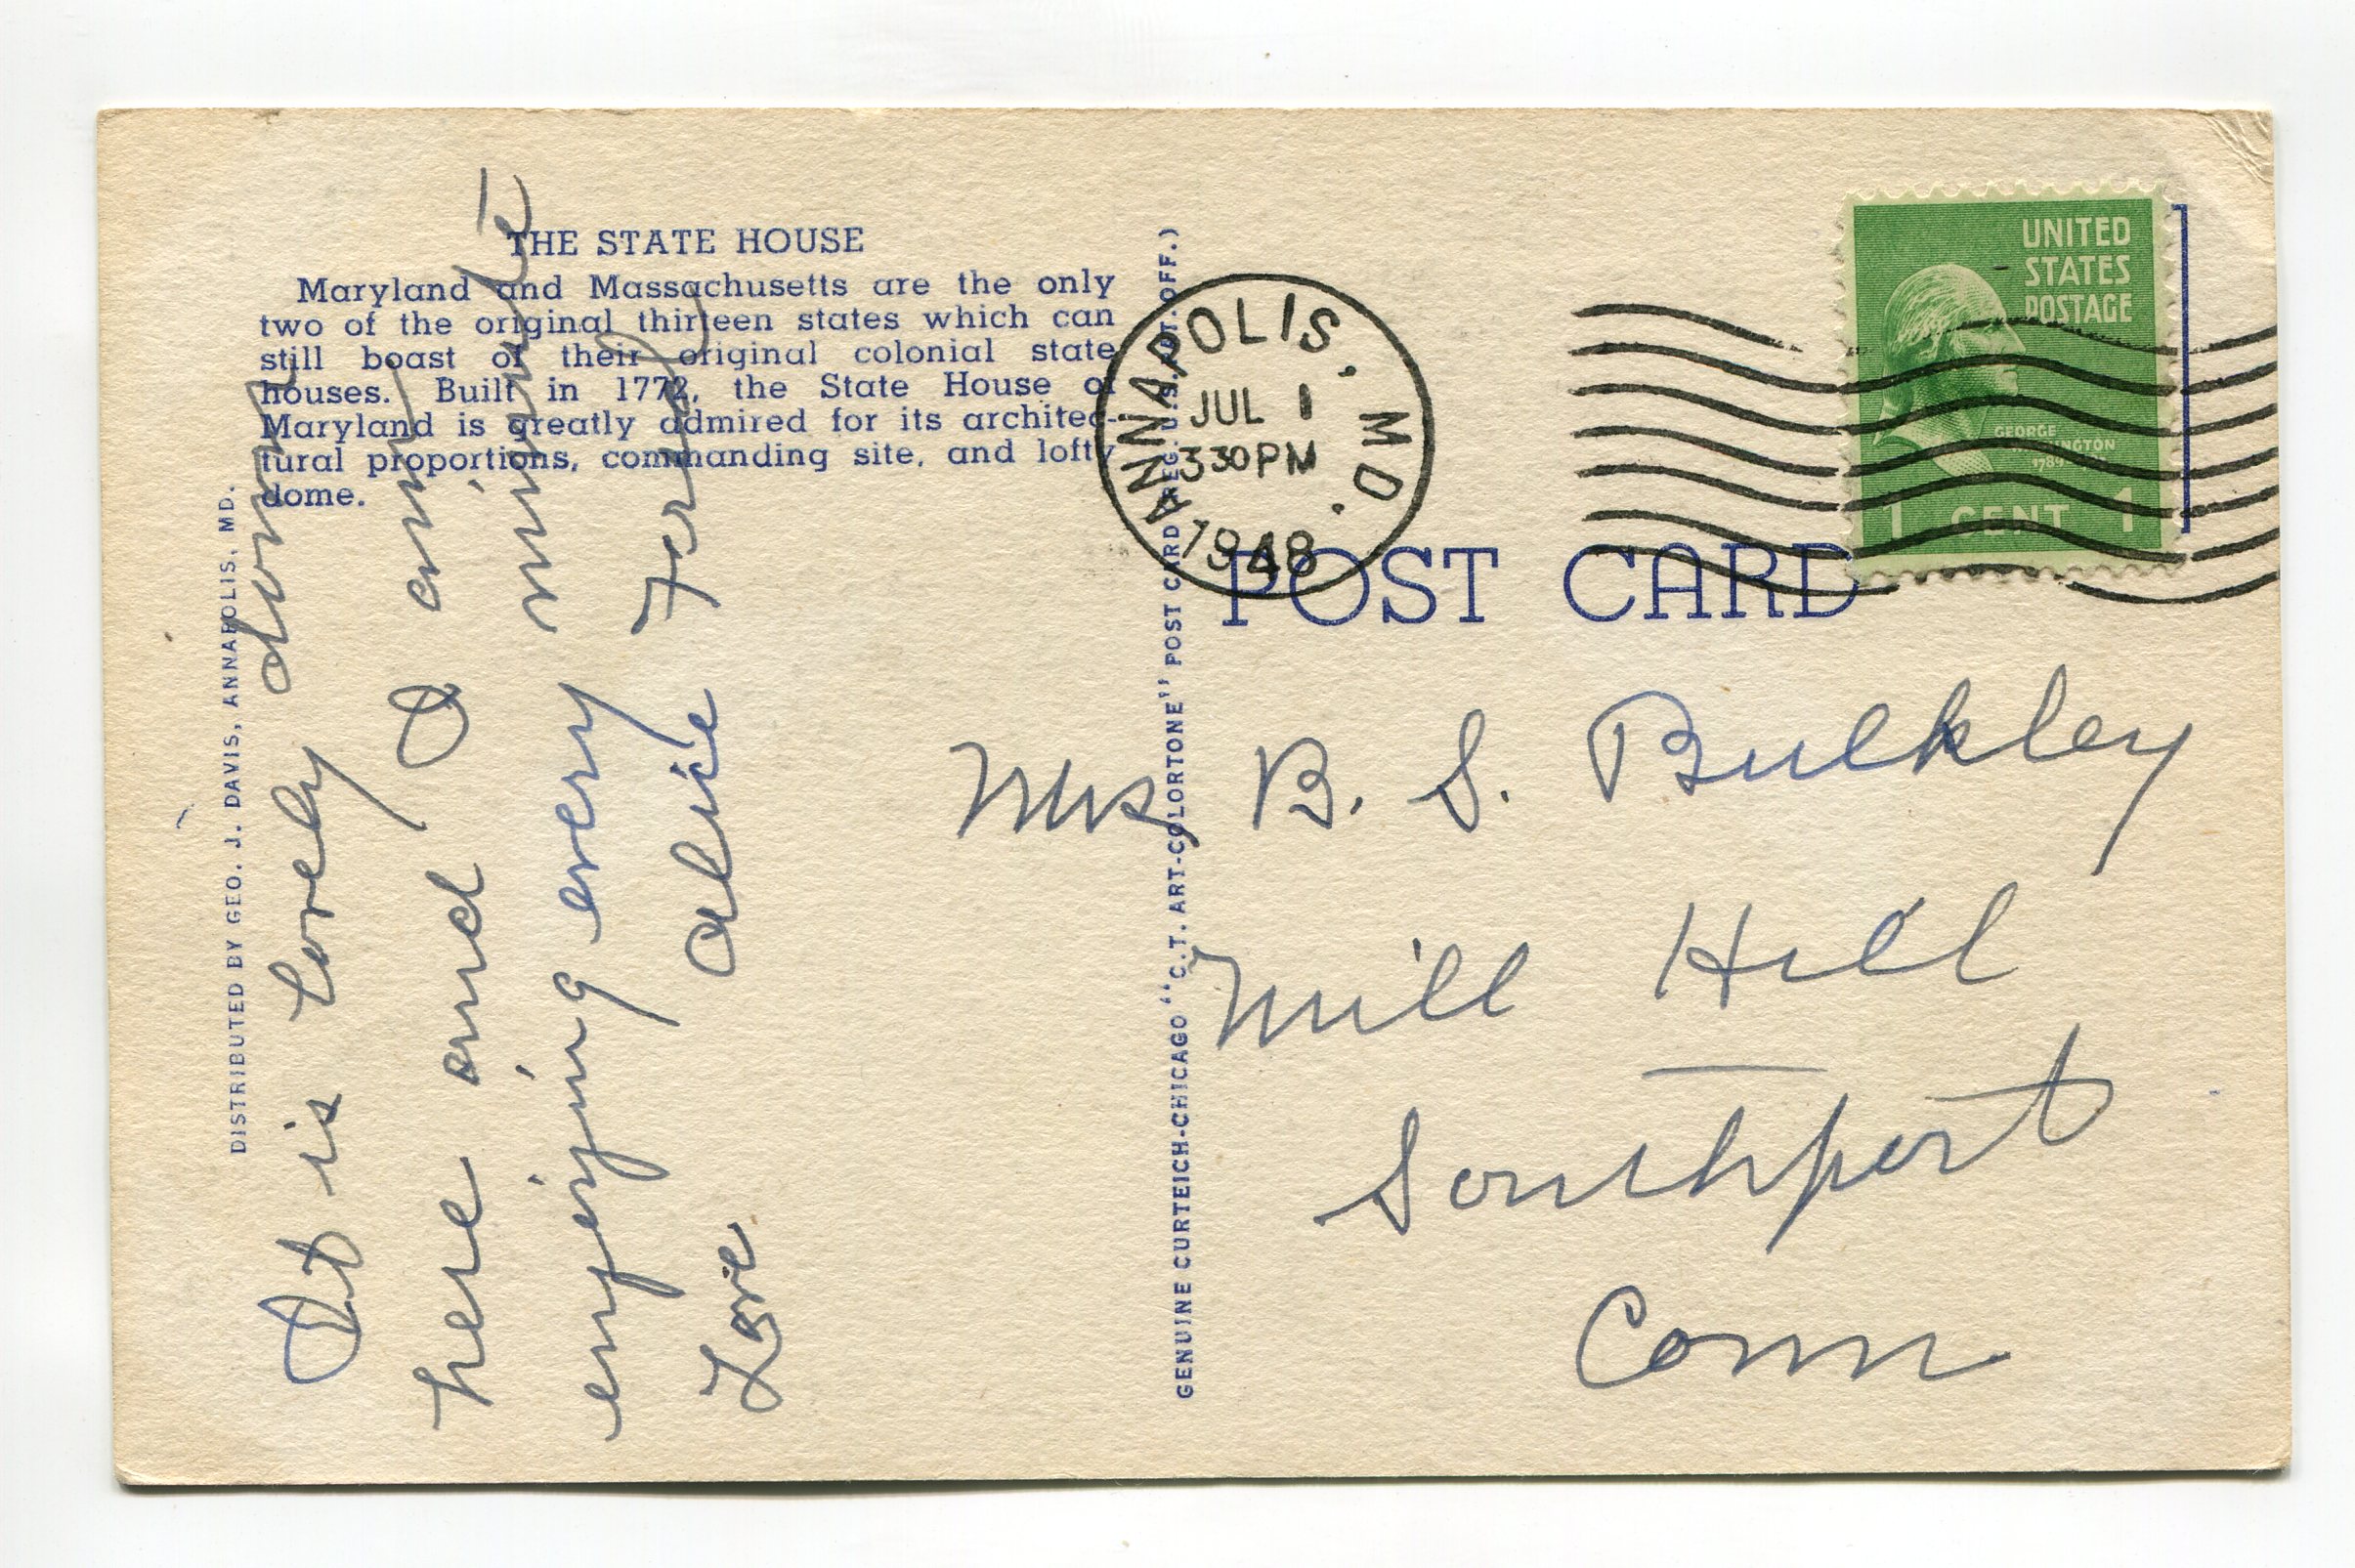 THE STATE HOUSE
Maryland and Massachusetts are the only
two of the original thirteen states which can
still boast of their original colonial state
houses. Built in 1772, the State House of
Maryland is greatly admired for its architec-
tural proportions, commanding site, and lofty
dome.
DISTRIBUTED BY GEO. J. DAVIS, ANNAPOLIS, MD.
It is lovely down
here and I am
enjoying every minute
Love Alice
GENUINE CURTEICH-CHICAGO "C.T. ART-COLORTONE" POST CARD (REG. U.S. PAT. OFF.)
ANNAPOLIS, MD.
JUL 1
330PM
1948
UNITED
STATES
POSTAGE
GEORGE
WASHINGTON
1789
1 CENT 1
POST CARD
Mrs B. S. Bulkley
Mill Hill
Southport
Conn